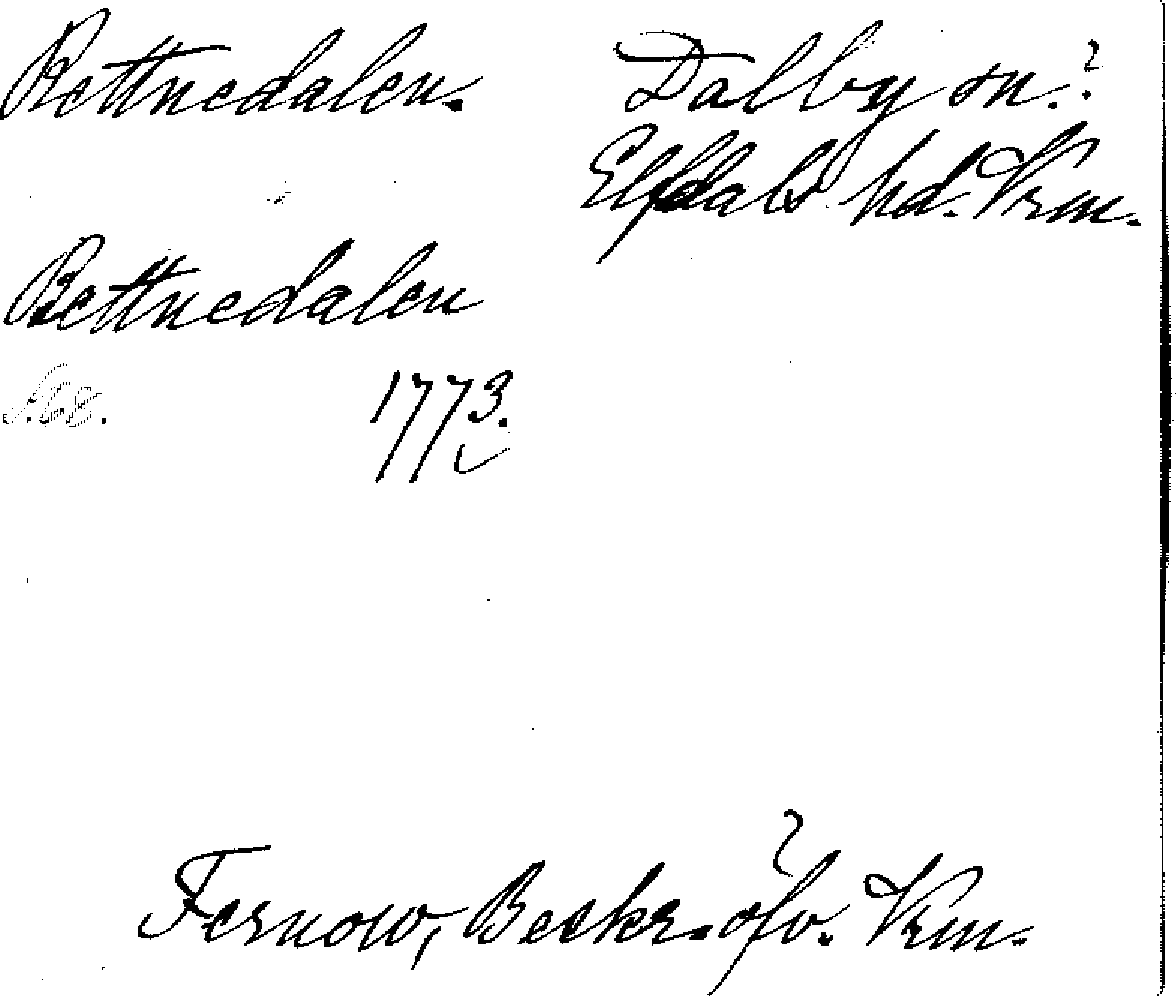 Rettnedalen. Dalby sn.?
Elfdals hd. Vrm.
Rettnedalen
S. 68. 1773.
Fernow, Beskr. öfv. Vrm.